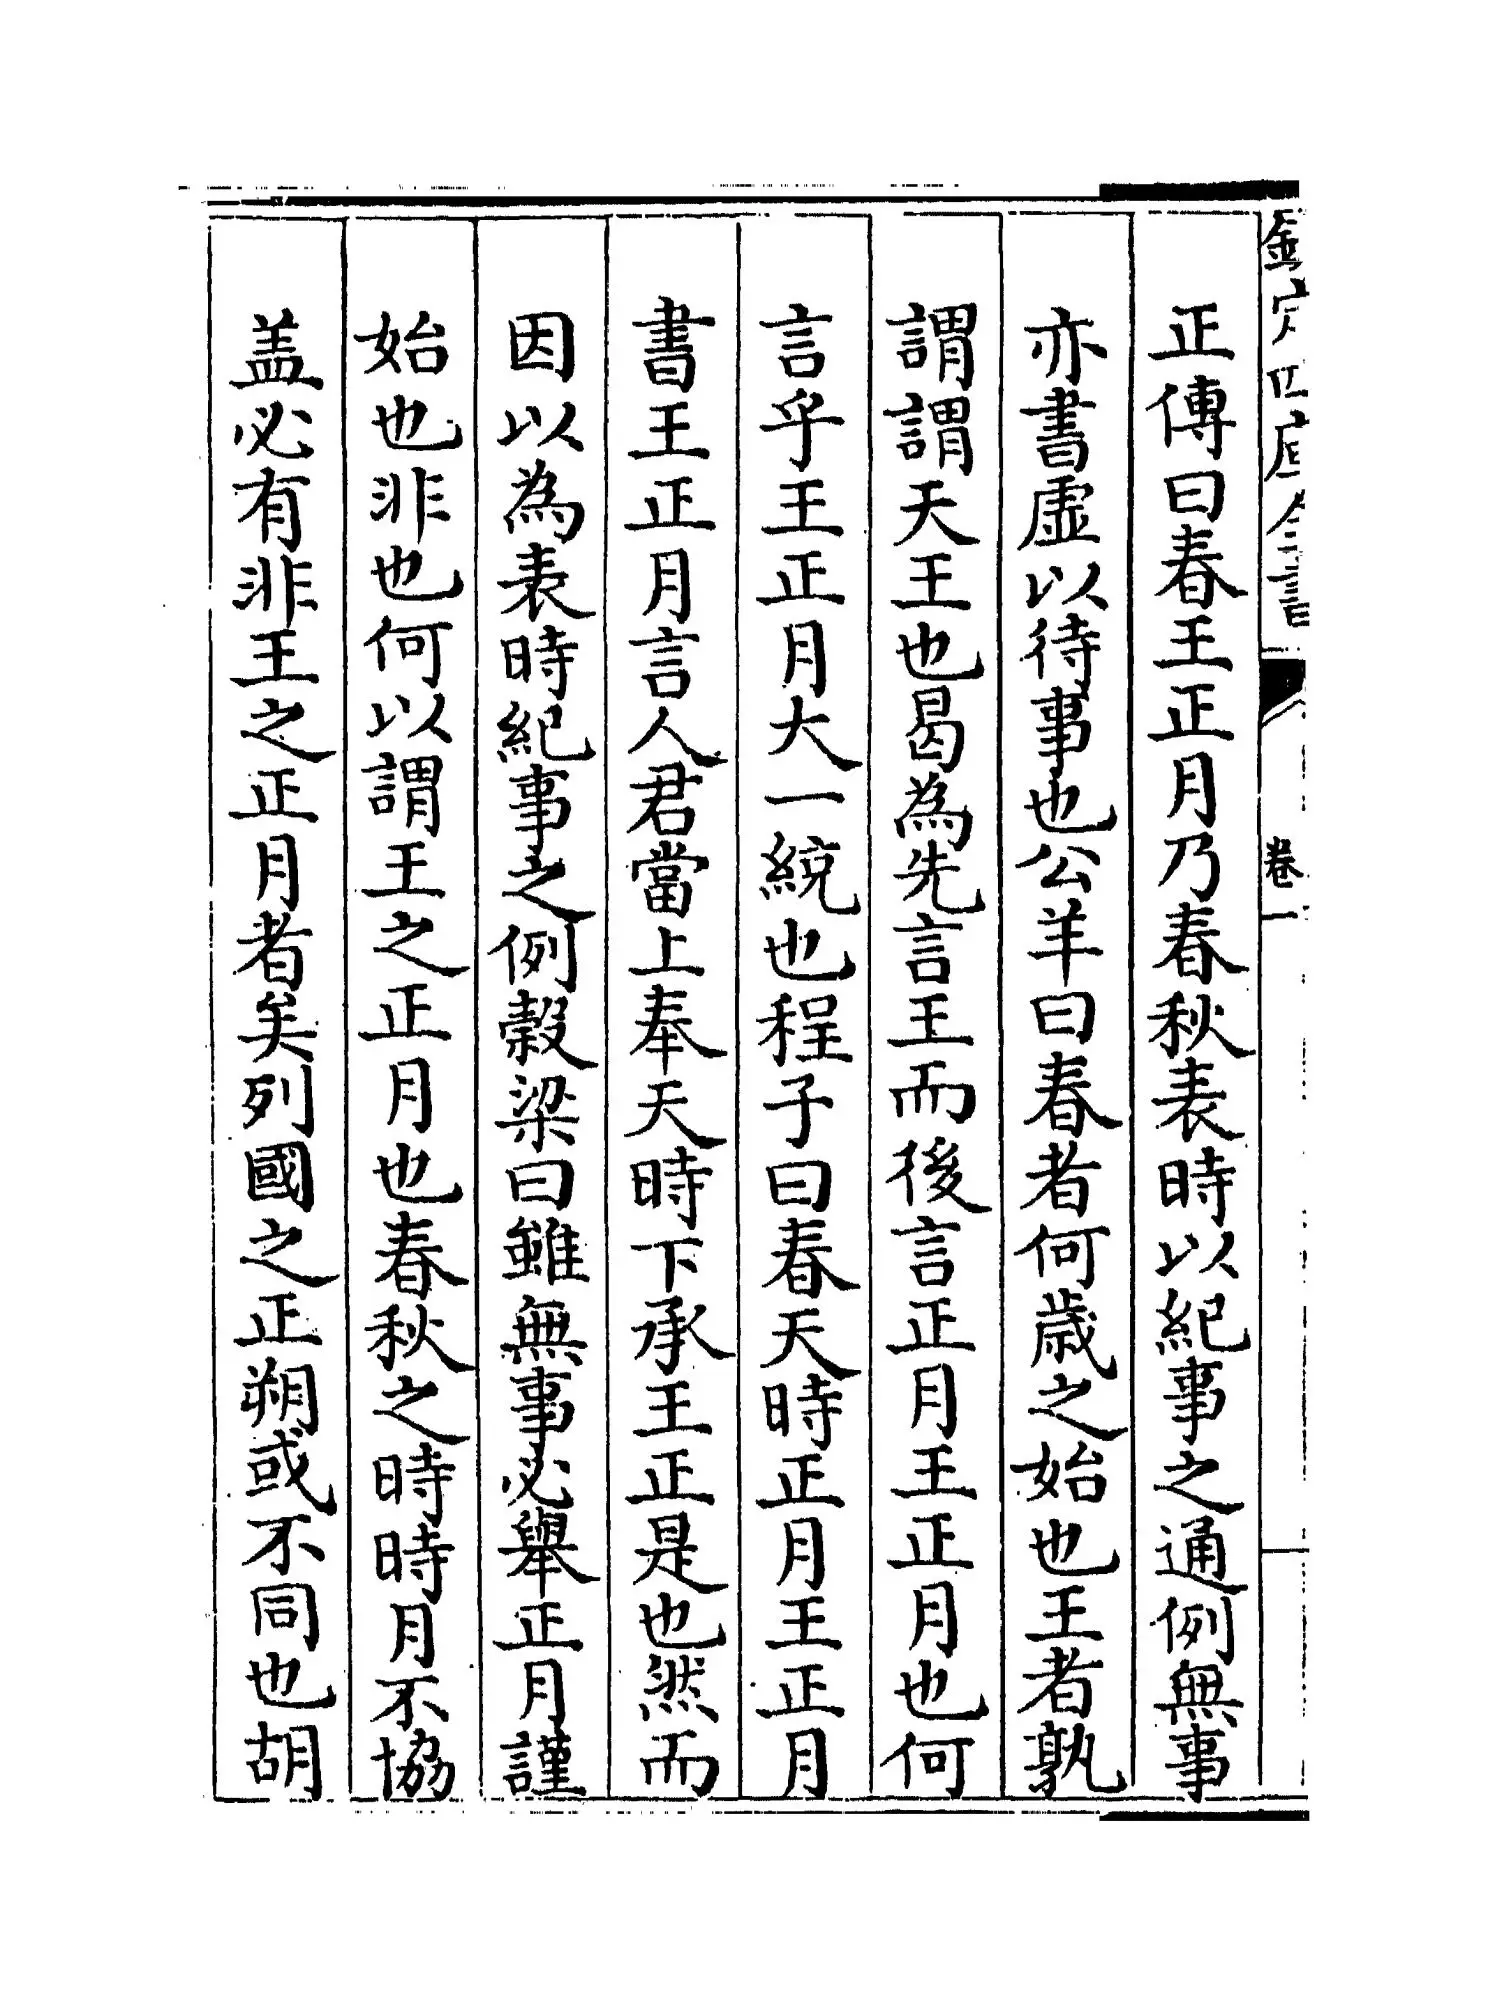 欽定四庫全書
卷一
正傳曰春王正月乃春秋表時以紀事之通例無事
亦書虛以待事也公羊曰春者何歲之始也王者孰
謂謂天王也曷為先言王而後言正月王正月也何
言乎王正月大一統也程子曰春天時正月王正月
書王正月言人君當上奉天時下承王正是也然而
因以為表時紀事之例穀梁曰雖無事必舉正月謹
始也非也何以謂王之正月也春秋之時時月不協
盖必有非王之正月者矣列國之正朔或不同也胡